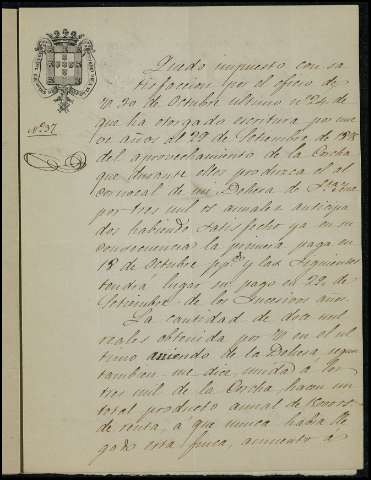 Nº 37.
Quedo impuesto con sa
tisfaccion por el oficio de
V. 30 de Octubre ultimo nº 24, de
que ha otorgado escritura por nue
ve años al 29 de Setiembre de
del aprovechamiento de la Corcha
que durante ellos produzca el al
cornocal de mi Dehesa de
por tres mil rs anuales anticipa
dos habiendo satisfecho ya en su
consecuencia la primera paga en
18 de Octubre pp.do y las siguientes
tendrá lugar su pago el 29 de
Setiembre de los sucesivos años.
La cantidad de doce mil
reales obtenida por V. en el ul
timo arriendo de la Dehesa, segun
tambien me dice, unida á los
tres mil de la Corcha, hacen un
total producto anual de
de renta, á que nunca habia lle
gado esta finca, aumento á